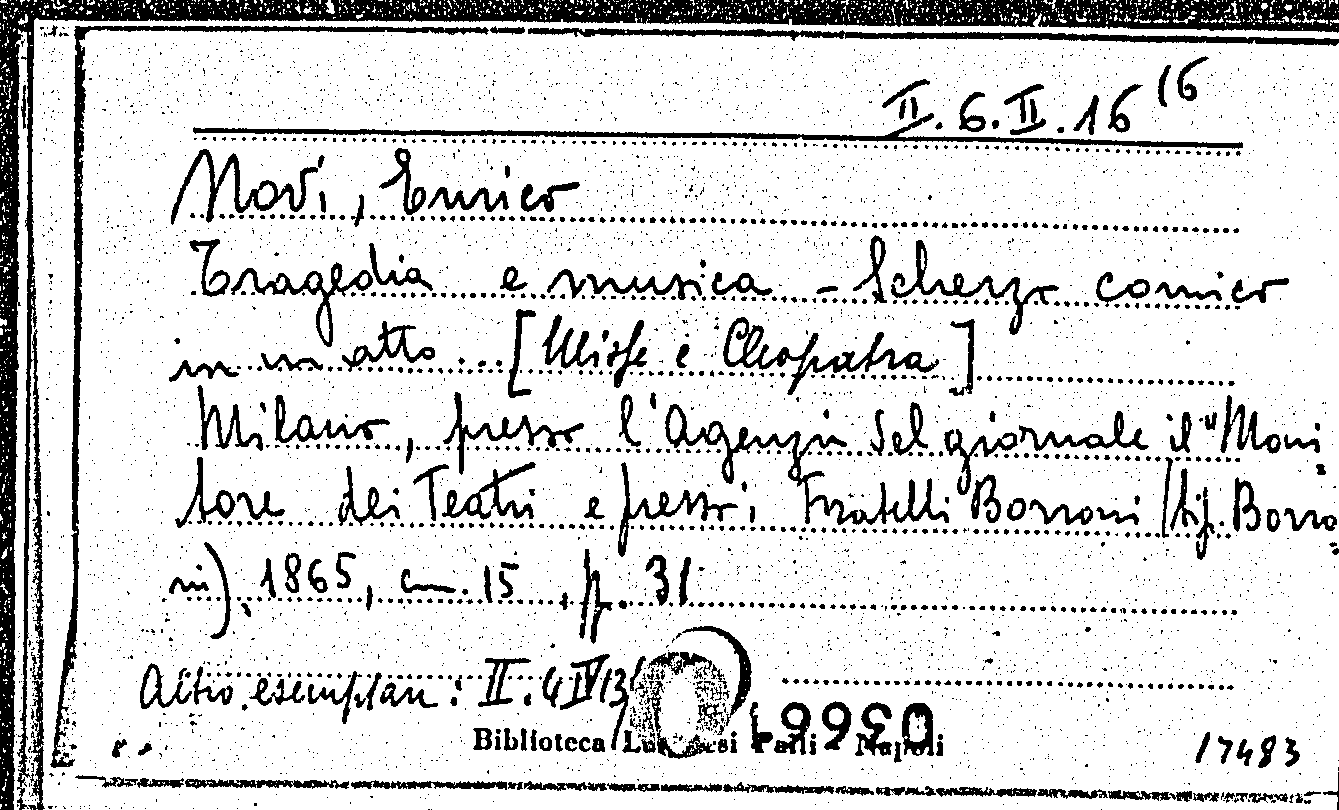 II.6.II.16 16
Novi, Enrico
Tragedia e musica - Scherzo comico
in un atto...[Ulisse e Cleopatra]
Milano, presso l'Agenzia del giornale il "Moni
tore dei Teatri e presso i Fratelli Borroni (tip. Borro
ni), 1865, cm. 15, pp. 31
Altro esemplare: II.4 IV 13
Biblioteca Lucchesi Palli - Napoli
17483